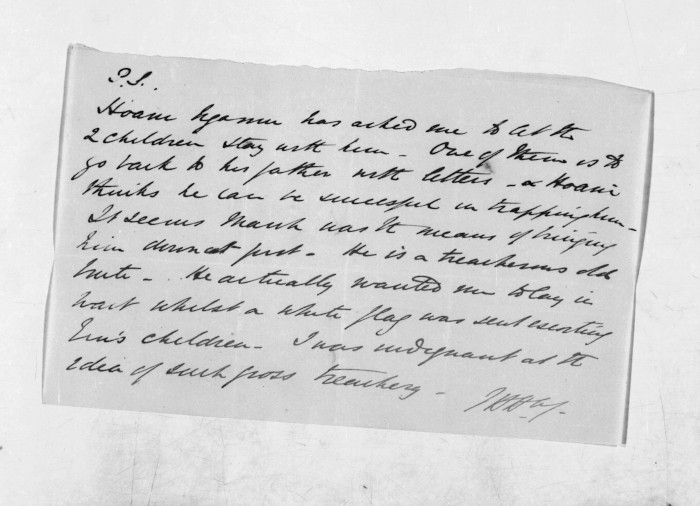 P.S.
Hoani has asked me to let the
2 children stay with him - One of them is to
go back to his father with letters - & Hoani
thinks he can be successful in trapping him -
It seems was the means of bringing
him down at first - He is a treacherous old
brute - He actually wanted me to lay in
wait whilst a white flag was sent escorting
children - I was indignant at the
idea of such gross treachery -